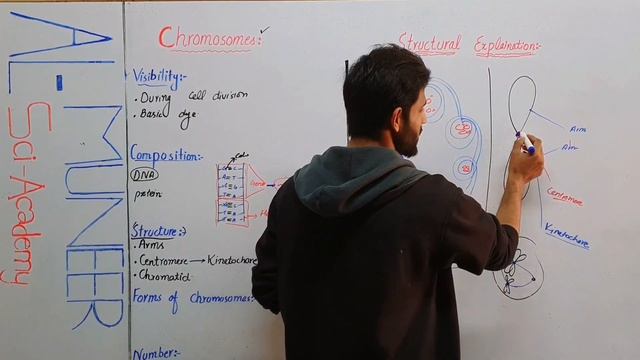 AL-MUNEER
Sci-Academy
Chromosomes:-
Visibility:-
• During cell division
• Basic dye
Composition:-
DNA
protein
Gene
Structure:-
• Arms
• Centromere → Kinetochore
• Chromatid
Forms of chromosomes:-
Number:-
Structural Explaination:-
Arm
Centromere
Kinetochore